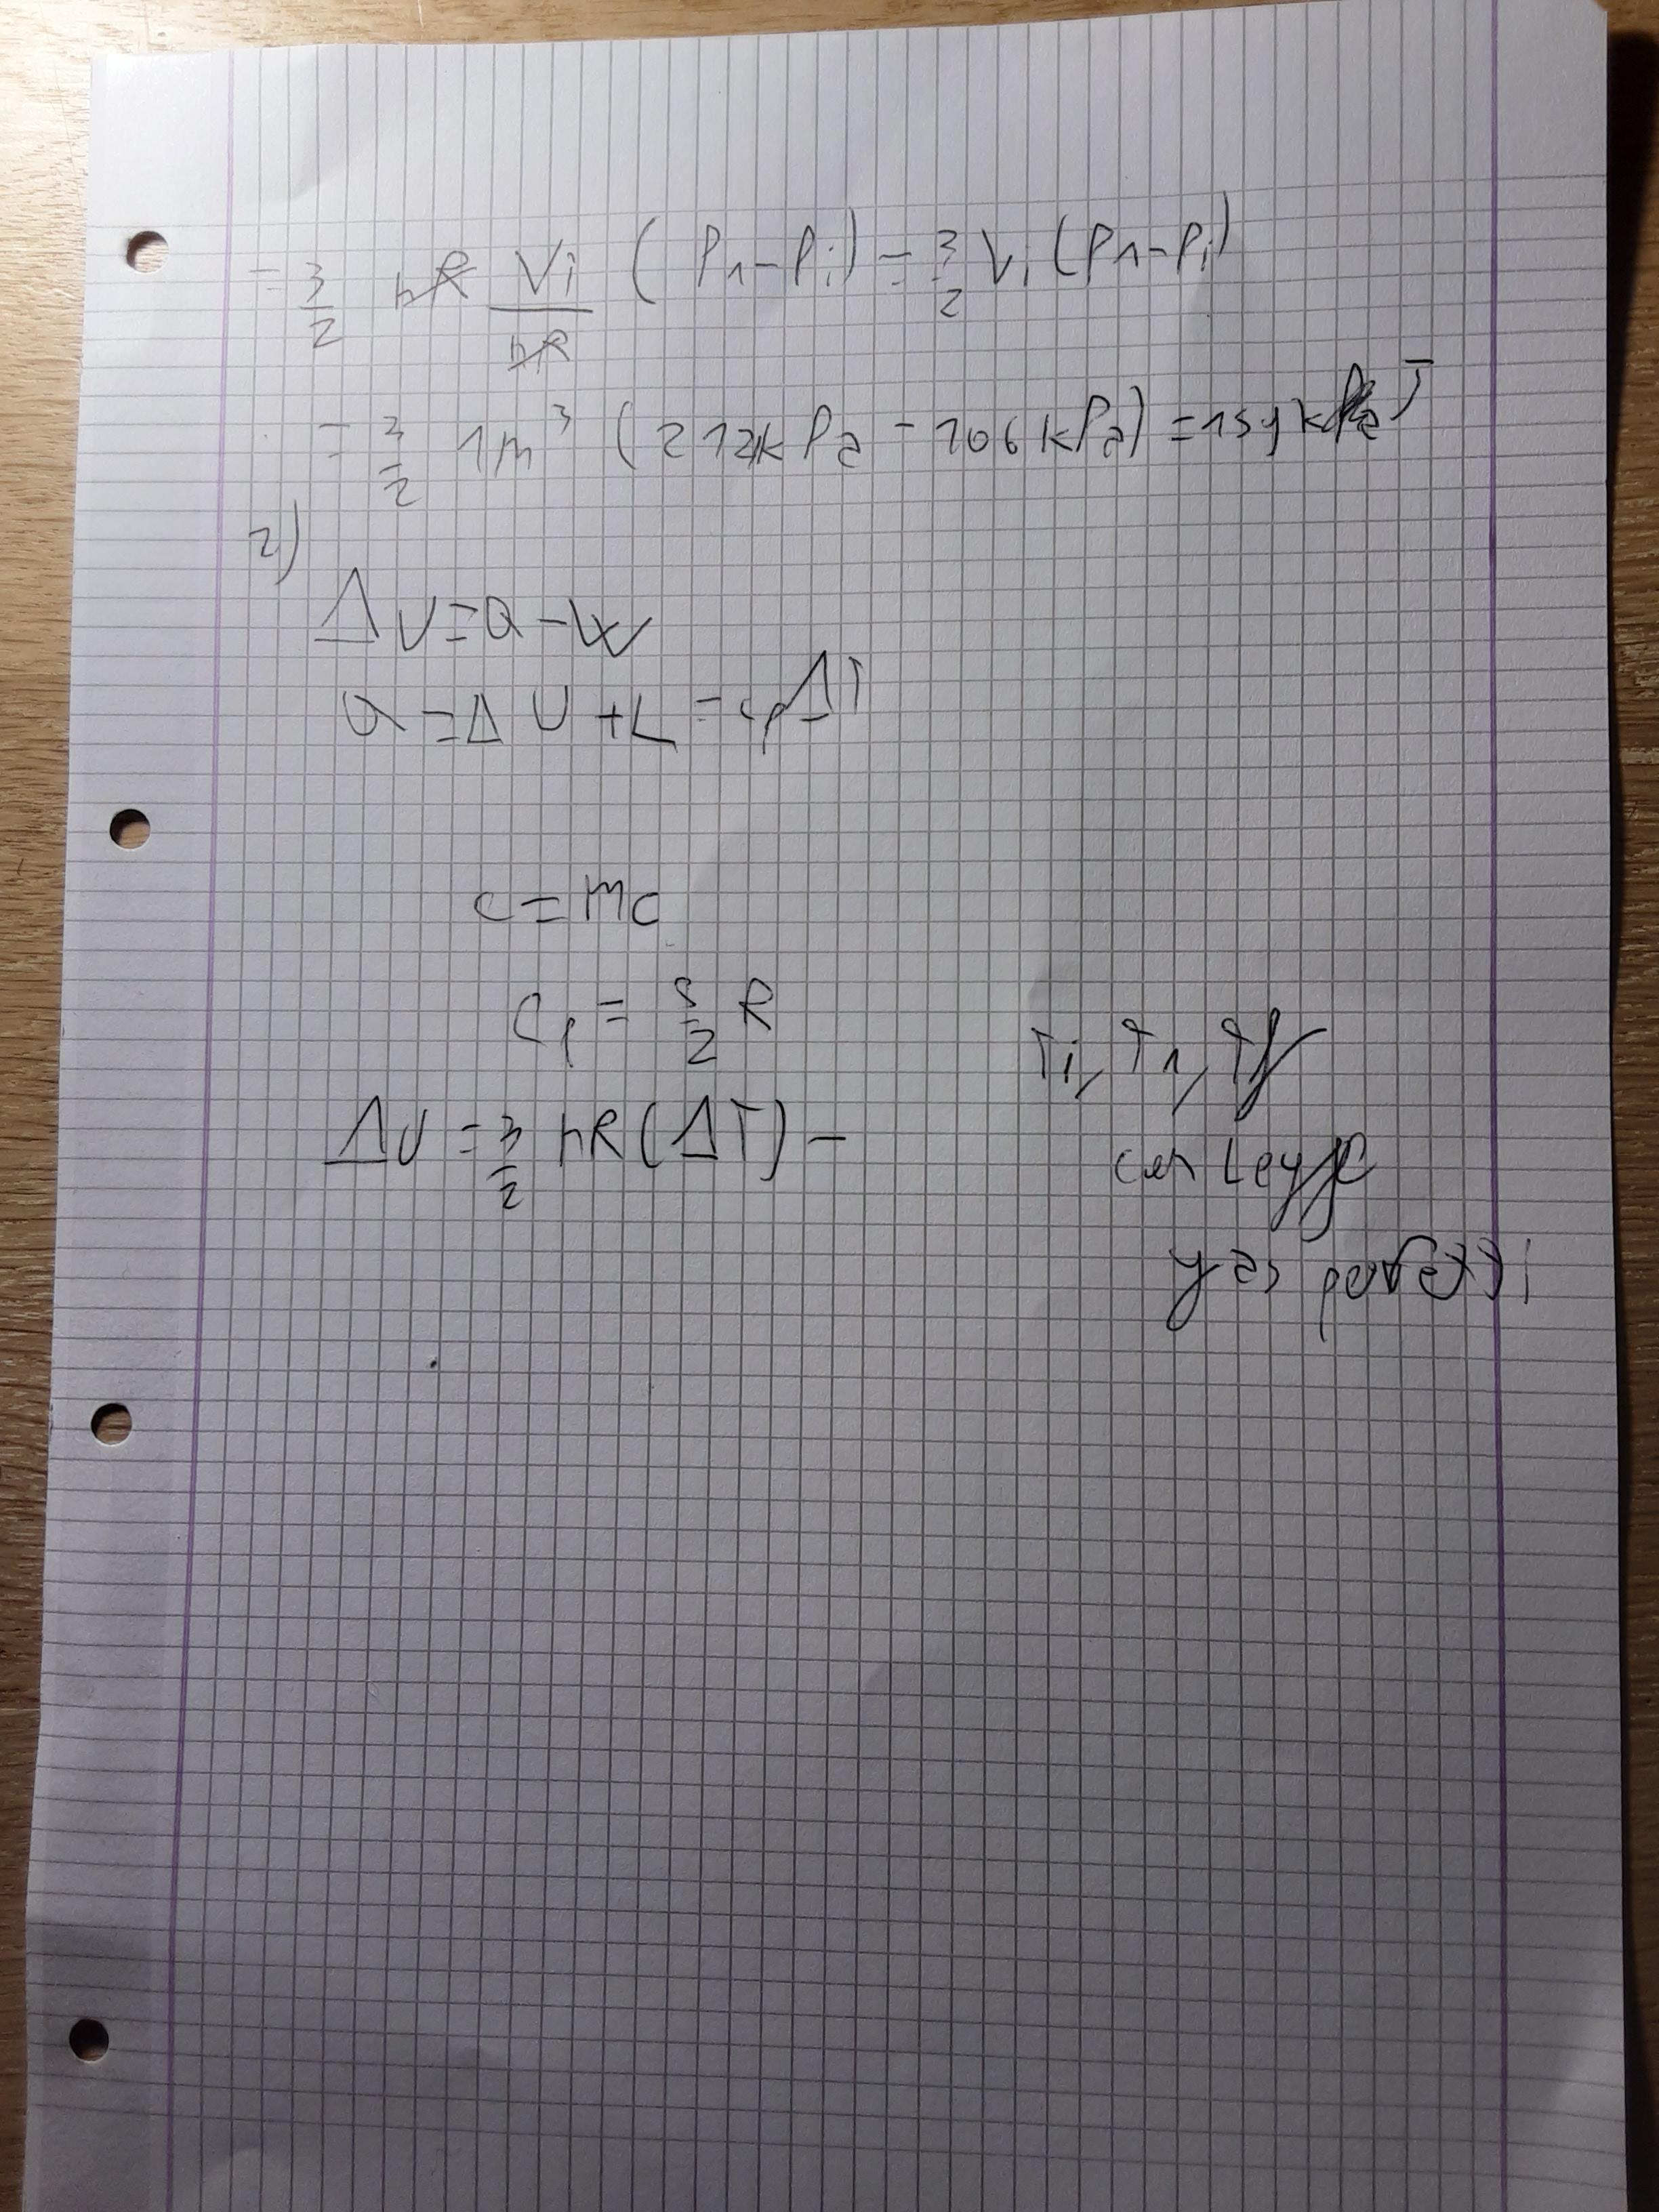 = 3/2 nR Vi/nR (P1 - Pi) = 3/2 Vi (P1 - Pi)
= 3/2 1m³ (212kPa - 106 kPa) = 159 kJ
2)
ΔU = Q - W
Q = ΔU + L = cpΔT
c = mc
Cp = 5/2 R
Ti, T1, Tf
ΔU = 3/2 nR(ΔT) -
con Legge
gas perfetti